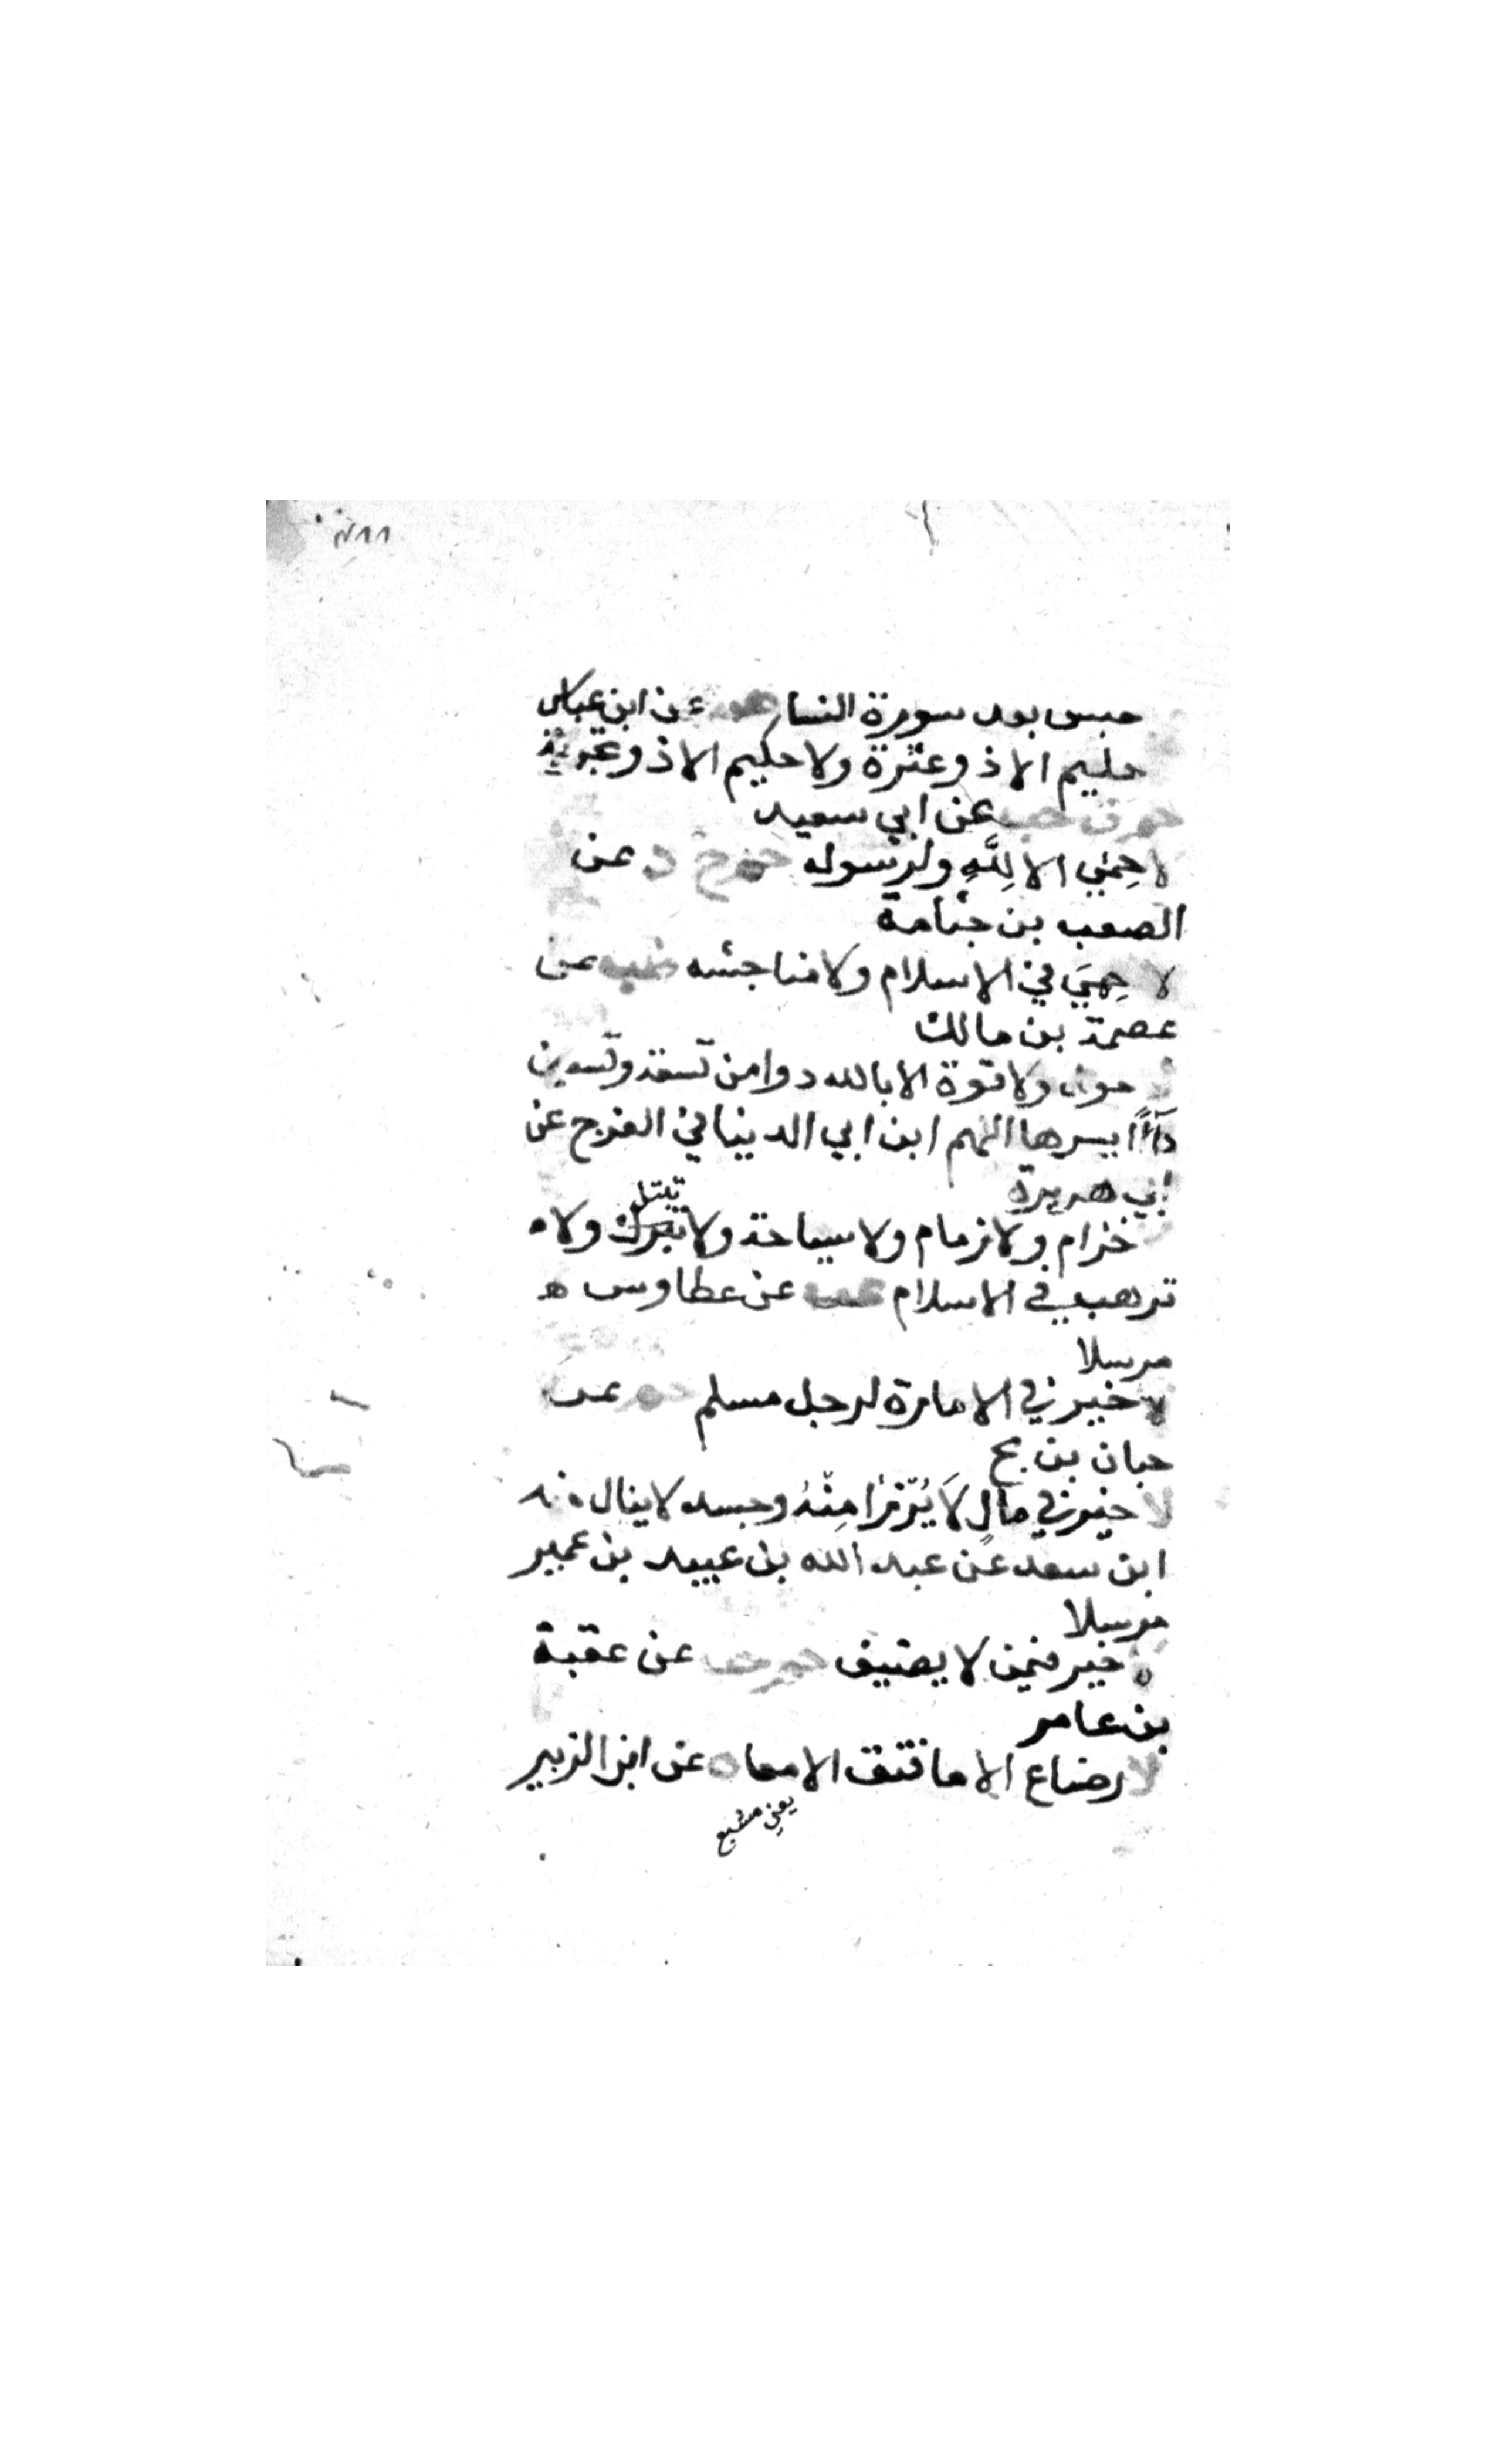 حبس بعد سورة النسا عن ابن عباس
حليم الا ذو عثرة ولا حكيم الا ذو تجربة
حم ت حب عن ابي سعيد
لا حِمَىٰ الا لِلَّهِ ولرسوله حم خ د عن
الصعب بن جثامة
لا حِمَىٰ في الاسلام ولا مناجشه طب عن
عصمة بن مالك
حول ولا قوة الا بالله دوا من تسعة وتسعين
دآءً ايسرها الهم ابن ابي الدنيا في الفرج عن
ابي هريرة
خزام ولا زمام ولا سياحة ولا تبتل ولا
ترهب في الاسلام عب عن طاوس
مرسلا
لا خير في الامارة لرجل مسلم حم عن
حبان بن بح
لا خير في مالٍ لَا يُرْزَأ مِنْهُ وجسد لا ينال منه
ابن سعد عن عبد الله بن عبيد بن عمير
مرسلا
خير فيمن لا يضيف حم هب عن عقبة
بن عامر
لا رضاع الا ما فتق الامعا ه عن ابن الزبير
يعني مشبع